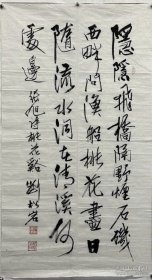 隐隐飛橋隔野煙石磯
西畔问漁船桃花盡日
隨流水洞在清溪何
處邊 張旭诗桃花谿 劉